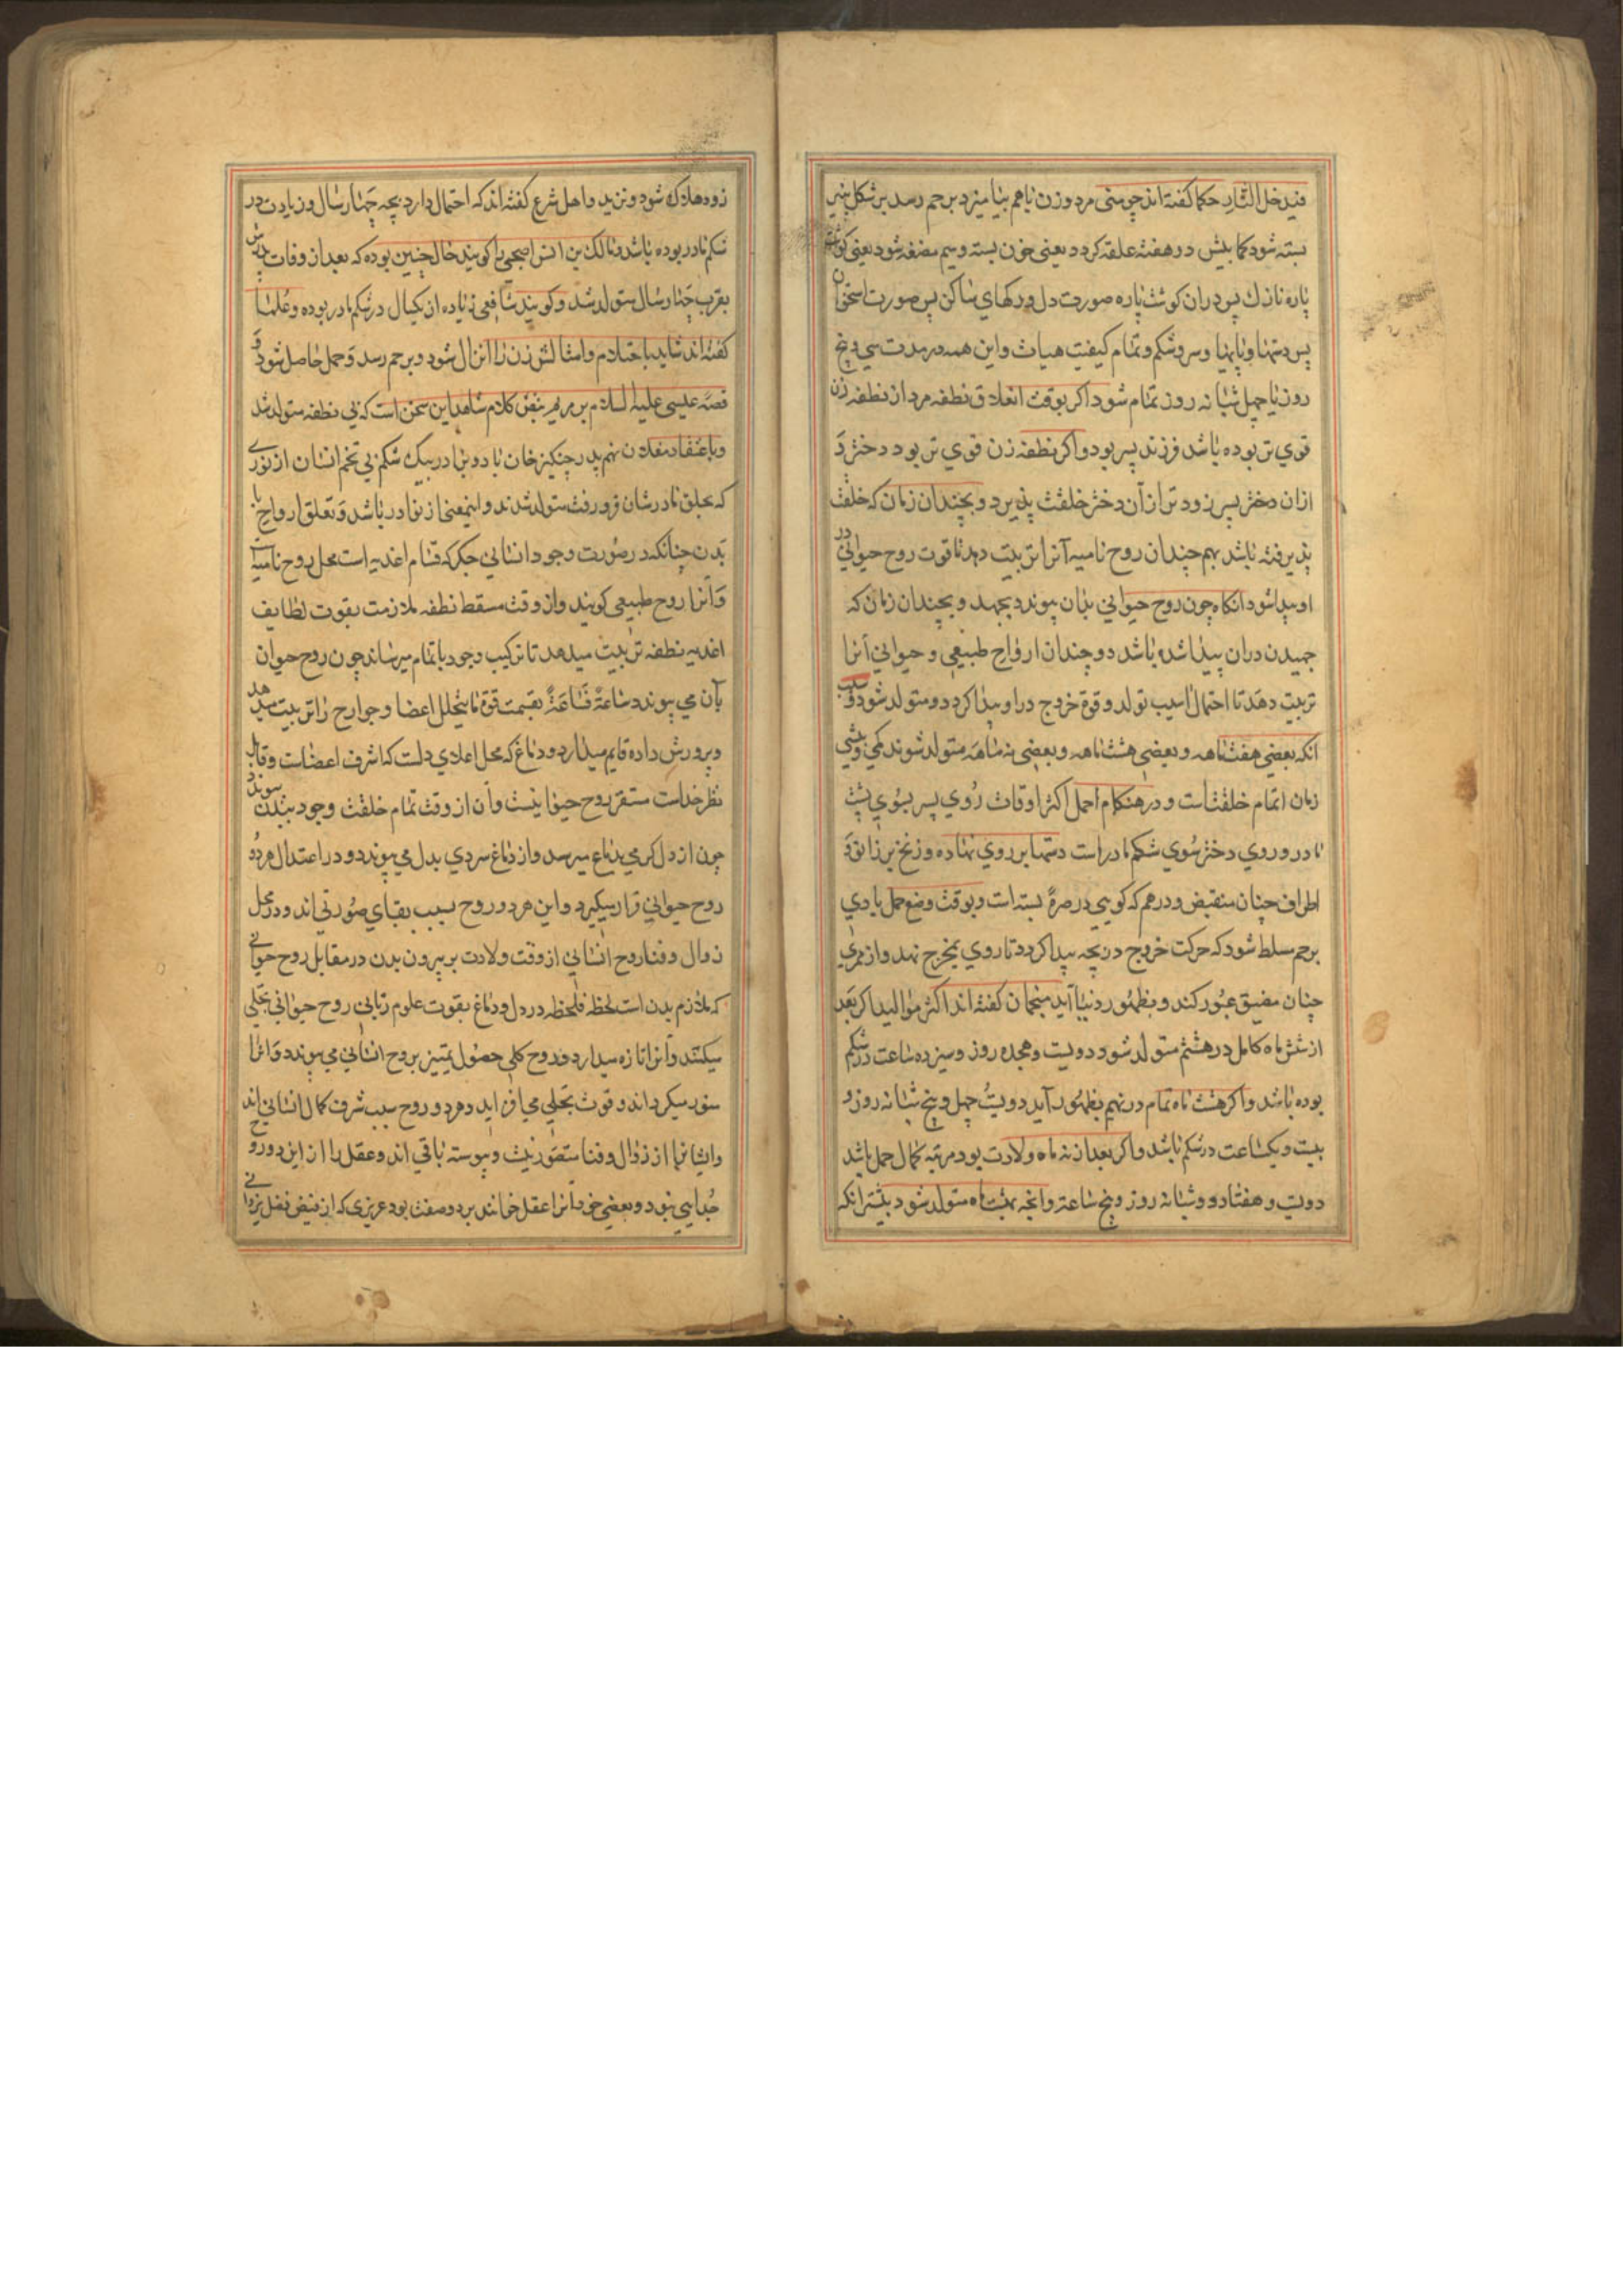 فیدخل النار حکما کفته اند چو منی مرد و زن با هم بیامیزد بر حم رسد بر شکل پنیر
بسته شود کما بیش در هفته علقه کردد یعنی خون بسته و سیم مضغه شود یعنی کوشت
پاره نازك پس دران کوشت پاره صورت دل و رکهای ساکن پس صورت استخوان
پس دستها و پایها و سر و شکم و تمام کیفیت هیات و این همه در مدت سی و پنج
روز یا چهل شبانه روز تمام شود اکر بوقت انعلاق نطفه مرد از نطفه زن
قوی تر بوده باشد فرزند پسر بود و اکر نطفه زن قوی تر بود دختر و
ازان دختر پسر زودتر از آن دختر خلقت پذیرد و بچندان زمان که خلقت
پذیرفته باشد بهم چندان روح نامیه آنرا تربیت دهد تا قوت روح حیوانی در
او پیدا شود انکاه چون روح حیوانی بدان پیوندد بجهد و بچندان زمان که
جهیدن دران پیدا شده باشد دو چندان ارواح طبیعی و حیوانی آنرا
تربیت دهد تا احتمال اسیب تولد و قوة خروج در او پیدا کردد و متولد شود و سبب
انکه بعضی هفت ماهه و بعضی هشت ماهه و بعضی نه ماهه متولد شوند کمی و بیشی
زمان اتمام خلقت است و در هنکام احمل اکثر اوقات روی پسر بسوی پشت
مادر و روی دختر سوی شکم مادر است دستها بر روی نهاده و زنخ بر زانو و
اطراف چنان منقبض و درهم که کویی در صرهٔ بسته است و بوقت وضع حمل بادی
بر حم مسلط شود که حرکت خروج در بچه پیدا کردد تا روی بمخرج نهد و از ممری
چنان مضیق عبور کند و بظهور دنیا آید منجمان کفته اند اکثر موالید اکر بعد
از شش ماه کامل در هشتم متولد شود دویست و هجده روز و سیزده ساعت در شکم
بوده باشد و اکر هشت ماه تمام در نهم بظهور آید دویست چهل و پنج شبانه روز و
بیست و یکساعت در شکم باشد و اکر بعد از نه ماه ولادت بود مرتبه کمال حمل باشد
دویست و هفتاد و دو شبانه روز و پنج ساعة و انچه بهشت ماه متولد شود بیشتر انکه
زود هلاك شود و نزید و اهل شرع کفته اند که احتمال دارد بچه چهار سال و زیادت در
شکم مادر بوده باشد و مالك بن انس اصبحی را کویند حال چنین بوده که بعد از وفات پدرش
بقرب چهار سال متولد شد و کویند شافعی زیاده از یکسال در شکم مادر بوده و علما
کفته اند شاید باحتلام و امثالش زن را انزال شود و برحم رسد و حمل حاصل شود و
قصه عیسی علیه السلام بر مریم بنص کلام شاهد این سخن است که بی نطفه متولد شد
و باعتقاد مغلان نهم پدر چنکیز خان با دو برادر بیك شکم بی تخم انسان از نوری
که بحلق مادرشان فرو رفت متولد شدند و اینمعنی از نوادر باشد و تعلق ارواح با
بدن چنانکه در صورت وجود انسانی جکر که قسام اغدیه است محل روح نامیه
و آنرا روح طبیعی کویند و از وقت مسقط نطفه ملازمت بقوت لطایف
اغدیه نطفه تربیت میدهد تا ترکیب وجود باتمام میرساند چون روح حیوان
بآن می پیوندد ساعةً فساعةً بقسمت قوة ما یتحلل اعضا و جوارح را تربیت میدهد
و پرورش داده قایم میدارد و دماغ که محل اعلای دلت که اشرف اعضاست و قابل
نظر خداست مستقر روح حیوانیست و آن از وقت تمام خلقت وجود ببدن پیوندد
چون از دل کرمی بدماغ میرسد و از دماغ سردی بدل می پیوندد و در اعتدال هر دو
روح حیوانی قرار میکیرد و این هر دو روح بسبب بقای صورتی اند و در محل
زوال و فنا روح انسانی از وقت ولادت بر بیرون بدن در مقابل روح حیوانی
که ملازم بدن است لحظه فلحظه در دل و دماغ بقوت علوم ربانی روح حیوانی تجلی
میکند و آنرا تازه میدارد و روح کلی حصول تمییز بروح انسانی می پیوندد و آنرا
منور میکرداند و قوت تجلی می افزاید و هر دو روح سبب شرف کمال انسانی اند
و ایشانرا از زوال و فنا متصور نیست و پیوسته باقی اند و عقل را از این دو روح
جدایی نبود و بعضی خود آنرا عقل خوانند بر دو صفت بود عزیزی که از فیض فضل یزدانی